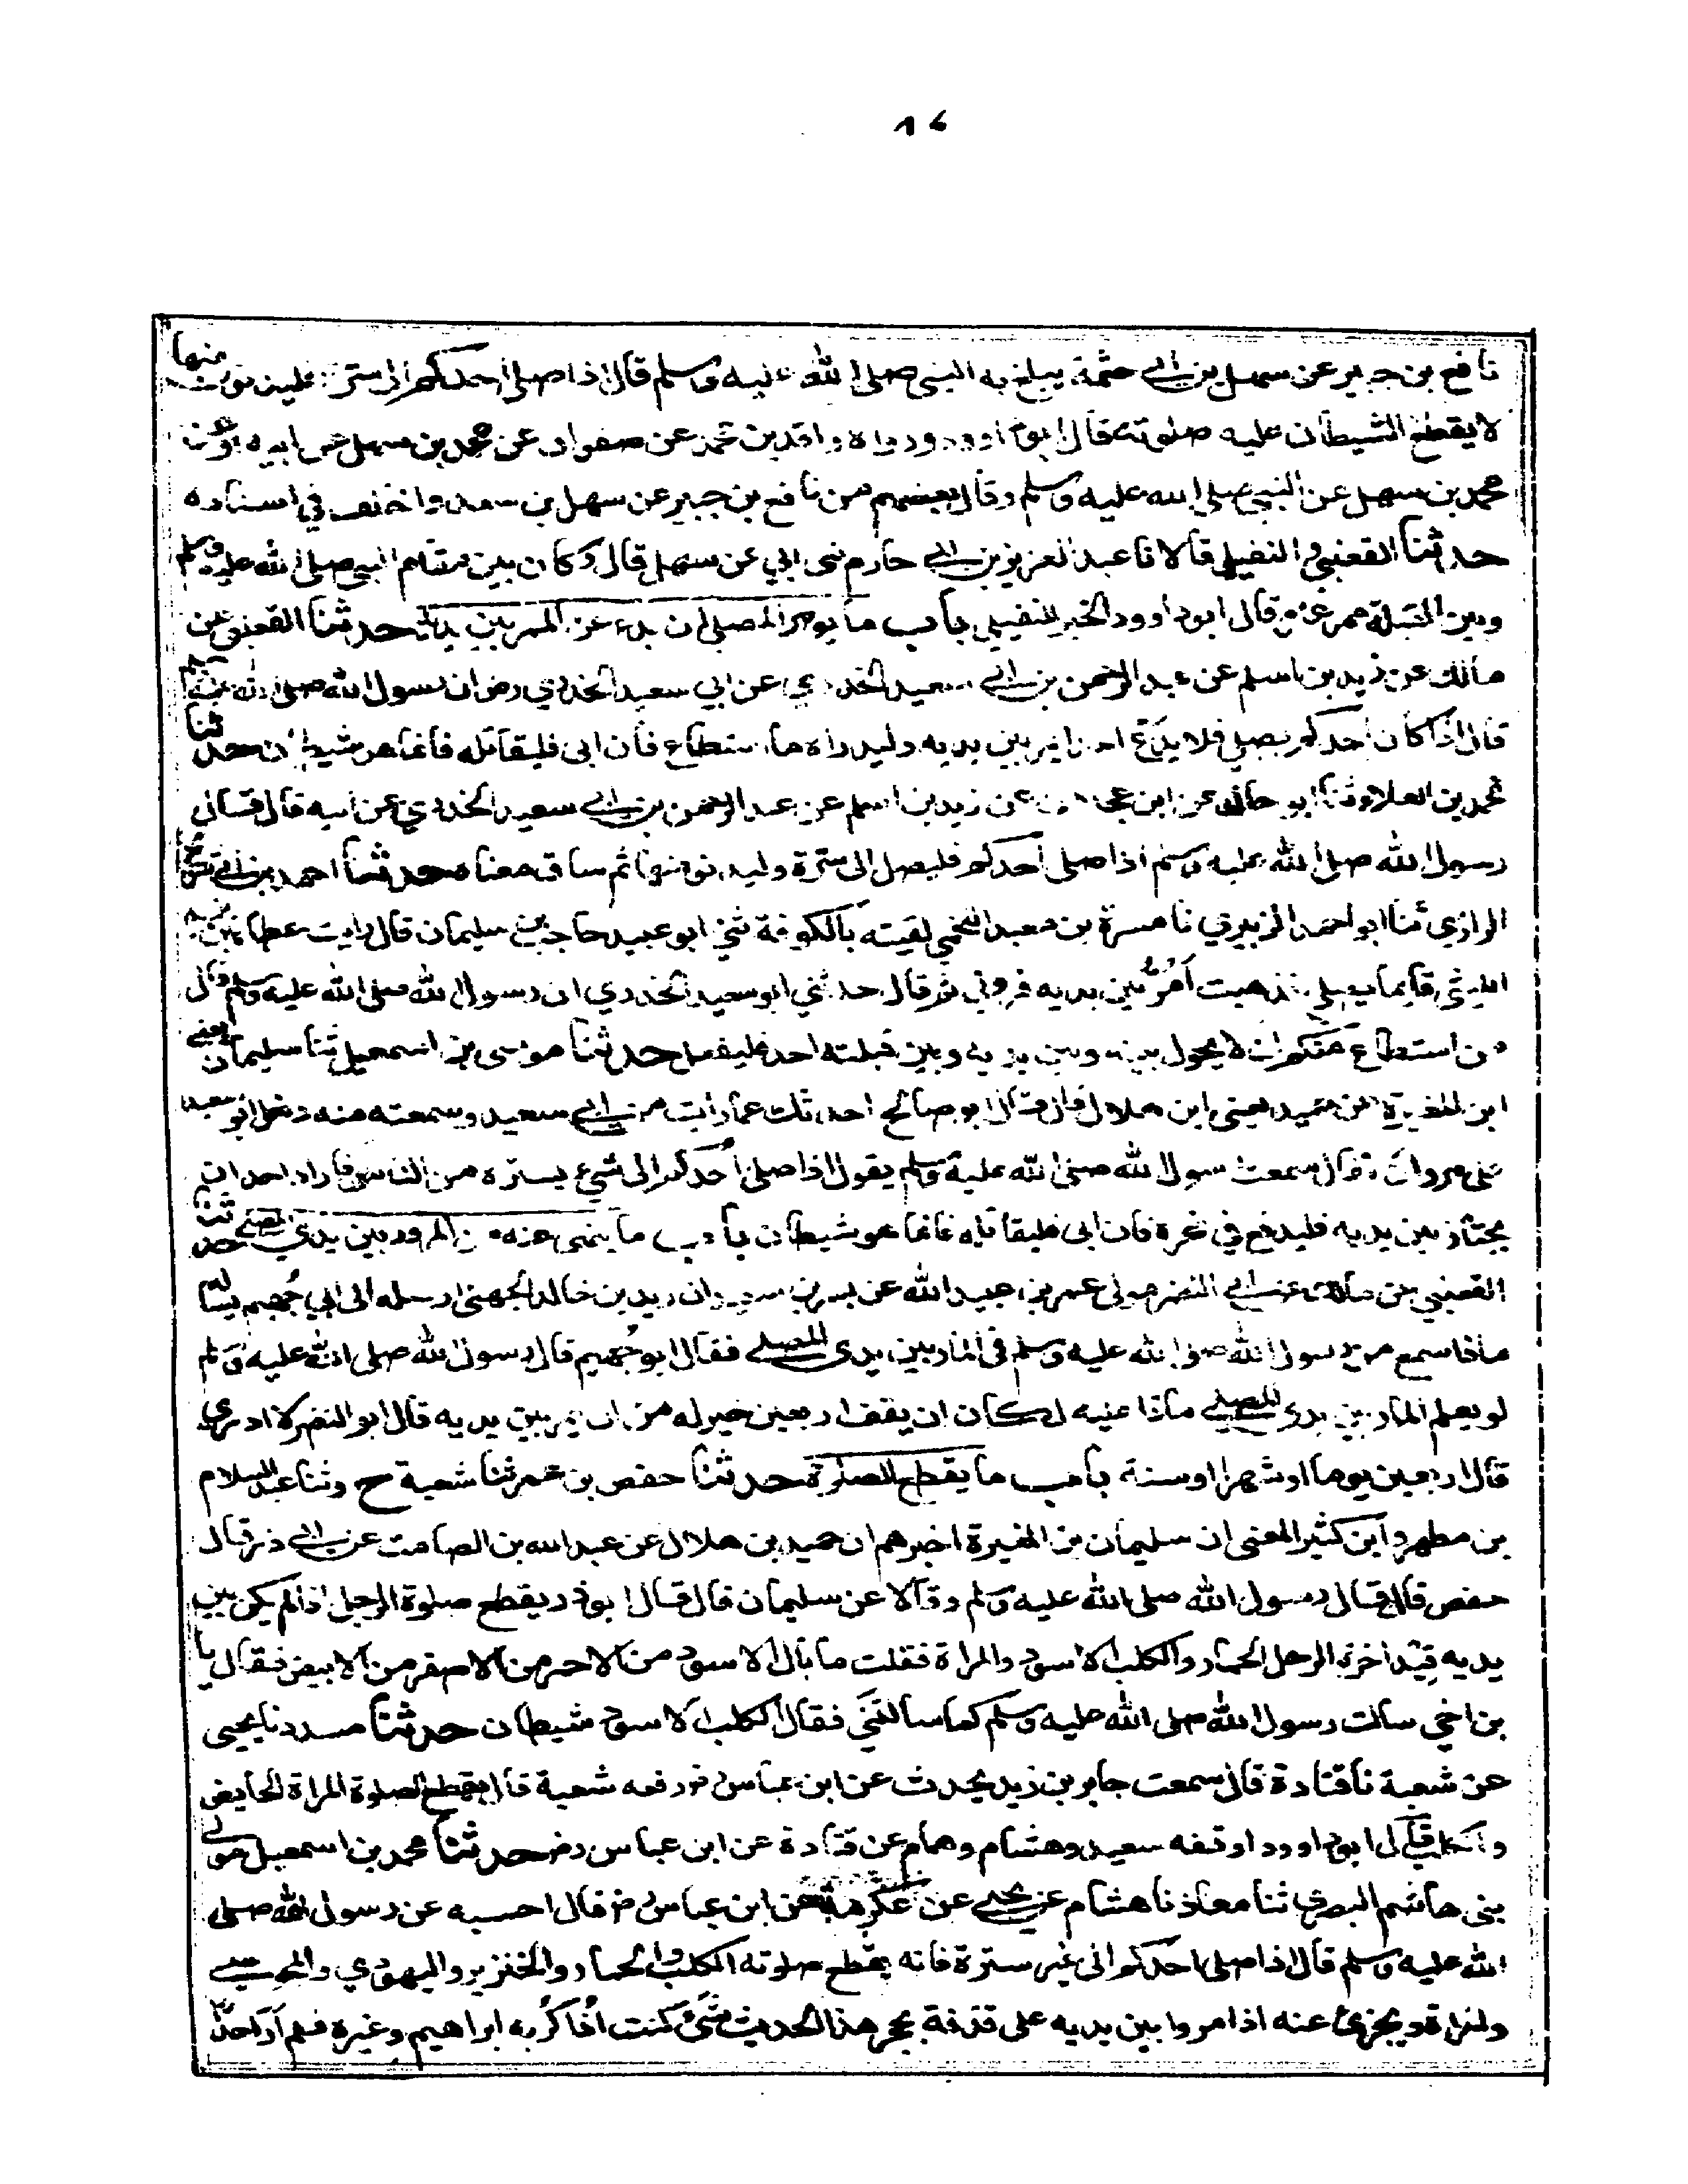 ١٤
نافع بن جبير عن سهل بن ابي حثمة يبلغ به النبي صلى الله عليه وسلم قال اذا صلى احدكم الى سترة فليدن منها
لا يقطع الشيطان عليه صلوته قال ابو داوود ورواه واقد بن محمد عن صفوان عن محمد بن سهل عن ابيه او عن
محمد بن سهل عن النبي صلى الله عليه وسلم وقال بعضهم عن نافع بن جبير عن سهل بن سعد واختلف في اسناده
حدثنا القعنبي والنفيلي قالا نا عبد العزيز بن ابي حازم ثنى ابي عن سهل قال وكان بين مقام النبي صلى الله عليه وسلم
وبين القبلة ممر عنز قال ابو داوود الخبر للنفيلي باب ما يومر المصلي ان يدرء عن الممر بين يديه حدثنا القعنبي عن
مالك عن زيد بن اسلم عن عبد الرحمن بن ابي سعيد الخدري عن ابي سعيد الخدري رض ان رسول الله صلى الله عليه وسلم
قال اذا كان احدكم يصلي فلا يدع احدا يمر بين يديه وليدراه ما استطاع فان ابى فليقاتله فانما هو شيطان حدثنا
محمد بن العلاء ثنا ابو خالد عن ابن عجلان عن زيد بن اسلم عن عبد الرحمن بن ابي سعيد الخدري عن ابيه قال قال
رسول الله صلى الله عليه وسلم اذا صلى احدكم فليصل الى سترة وليدن منها ثم ساق معناه حدثنا احمد بن ابي سريج
الرازي ثنا ابو احمد الزبيري نا مسرة بن معبد اللخمي لقيته بالكوفة ثني ابو عبيد حاجب سليمان قال رايت عطا بن يزيد
الليثي قايما يصلي فذهبت امر بين يديه فردني ثم قال حدثني ابو سعيد الخدري ان رسول الله صلى الله عليه وسلم قال
من استطاع منكم ان لا يحول بينه وبين قبلته احد فليفعل حدثنا موسى بن اسمعيل ثنا سليمان يعني
ابن المغيرة عن حميد يعني ابن هلال قال قال ابو صالح احدثك عما رايت من ابي سعيد وسمعته منه دخل ابو سعيد
على مروان فقال سمعت رسول الله صلى الله عليه وسلم يقول اذا صلى احدكم الى شيء يستره من الناس فاراد احد ان
يجتاز بين يديه فليدفع في نحره فان ابى فليقاتله فانما هو شيطان باب ما ينهى عنه من المرور بين يدي المصلي حدثنا
القعنبي عن مالك عن ابي النضر مولى عمر بن عبيد الله عن بسر بن سعيد ان زيد بن خالد الجهني ارسله الى ابي جهيم يساله
ماذا سمع من رسول الله صلى الله عليه وسلم في المار بين يدى المصلي فقال ابو جهيم قال رسول الله صلى الله عليه وسلم
لو يعلم المار بين يدى المصلي ماذا عليه لكان ان يقف اربعين خير له من ان يمر بين يديه قال ابو النضر لا ادري
قال اربعين يوما او شهرا او سنة باب ما يقطع الصلوة حدثنا حفص بن عمر ثنا شعبة ح وثنا عبد السلام
بن مطهر وابن كثير المعنى ان سليمان بن المغيرة اخبرهم ان حميد بن هلال عن عبد الله بن الصامت عن ابي ذر قال
حفص قال قال رسول الله صلى الله عليه وسلم وقالا عن سليمان قال قال ابو ذر يقطع صلوة الرجل اذا لم يكن بين
يديه قيد اخرة الرحل الحمار والكلب الاسود والمراة فقلت ما بال الاسود من الاحمر من الاصفر من الابيض فقال يا
بن اخي سالت رسول الله صلى الله عليه وسلم كما سالتني فقال الكلب الاسود شيطان حدثنا مسدد نا يحيى
عن شعبة نا قتادة قال سمعت جابر بن زيد يحدث عن ابن عباس رفعه شعبة قال يقطع الصلوة المراة الحايض
والكلب قال ابو داوود اوقفه سعيد وهشام وهمام عن قتادة عن ابن عباس رض حدثنا محمد بن اسمعيل مولى
بني هاشم البصري ثنا معاذ نا هشام عن يحيى عن عكرمة عن ابن عباس رض قال احسبه عن رسول الله صلى
الله عليه وسلم قال اذا صلى احدكم الى غير سترة فانه يقطع صلوته الكلب والحمار والخنزير واليهودي والمجوسي
والمراة ويجزئ عنه اذا مروا بين يديه على قذفة بحجر هذا الحديث شيء كنت اذاكر به ابراهيم وغيره فلم ار احدا